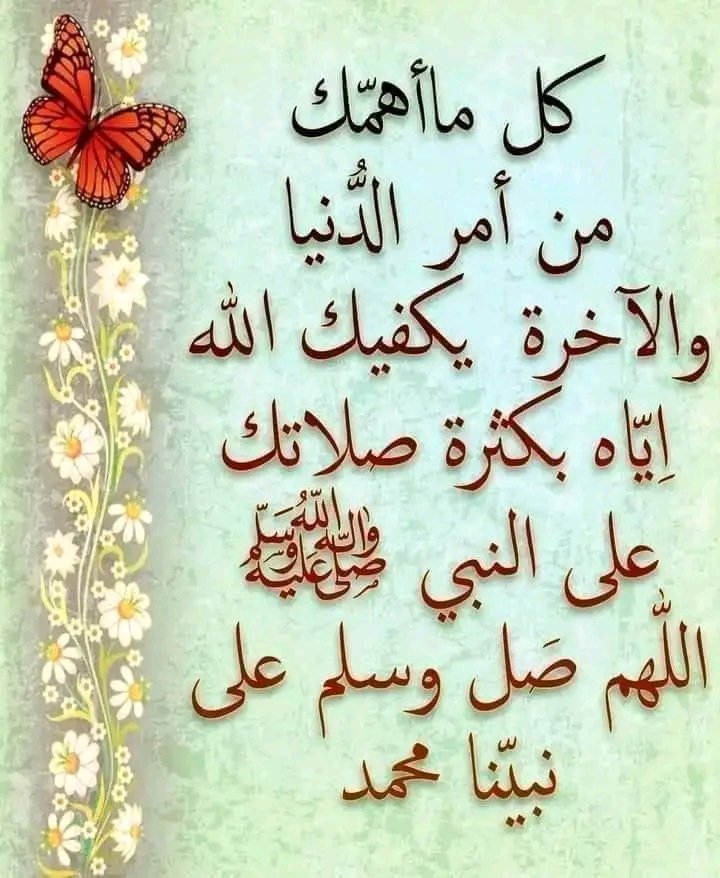 كل ماأهمّك
من أمر الدُّنيا
والآخرة يكفيك الله
إيّاه بكثرة صلاتك
على النبي ﷺ
اللّهم صَل وسلم على
نبيّنا محمد